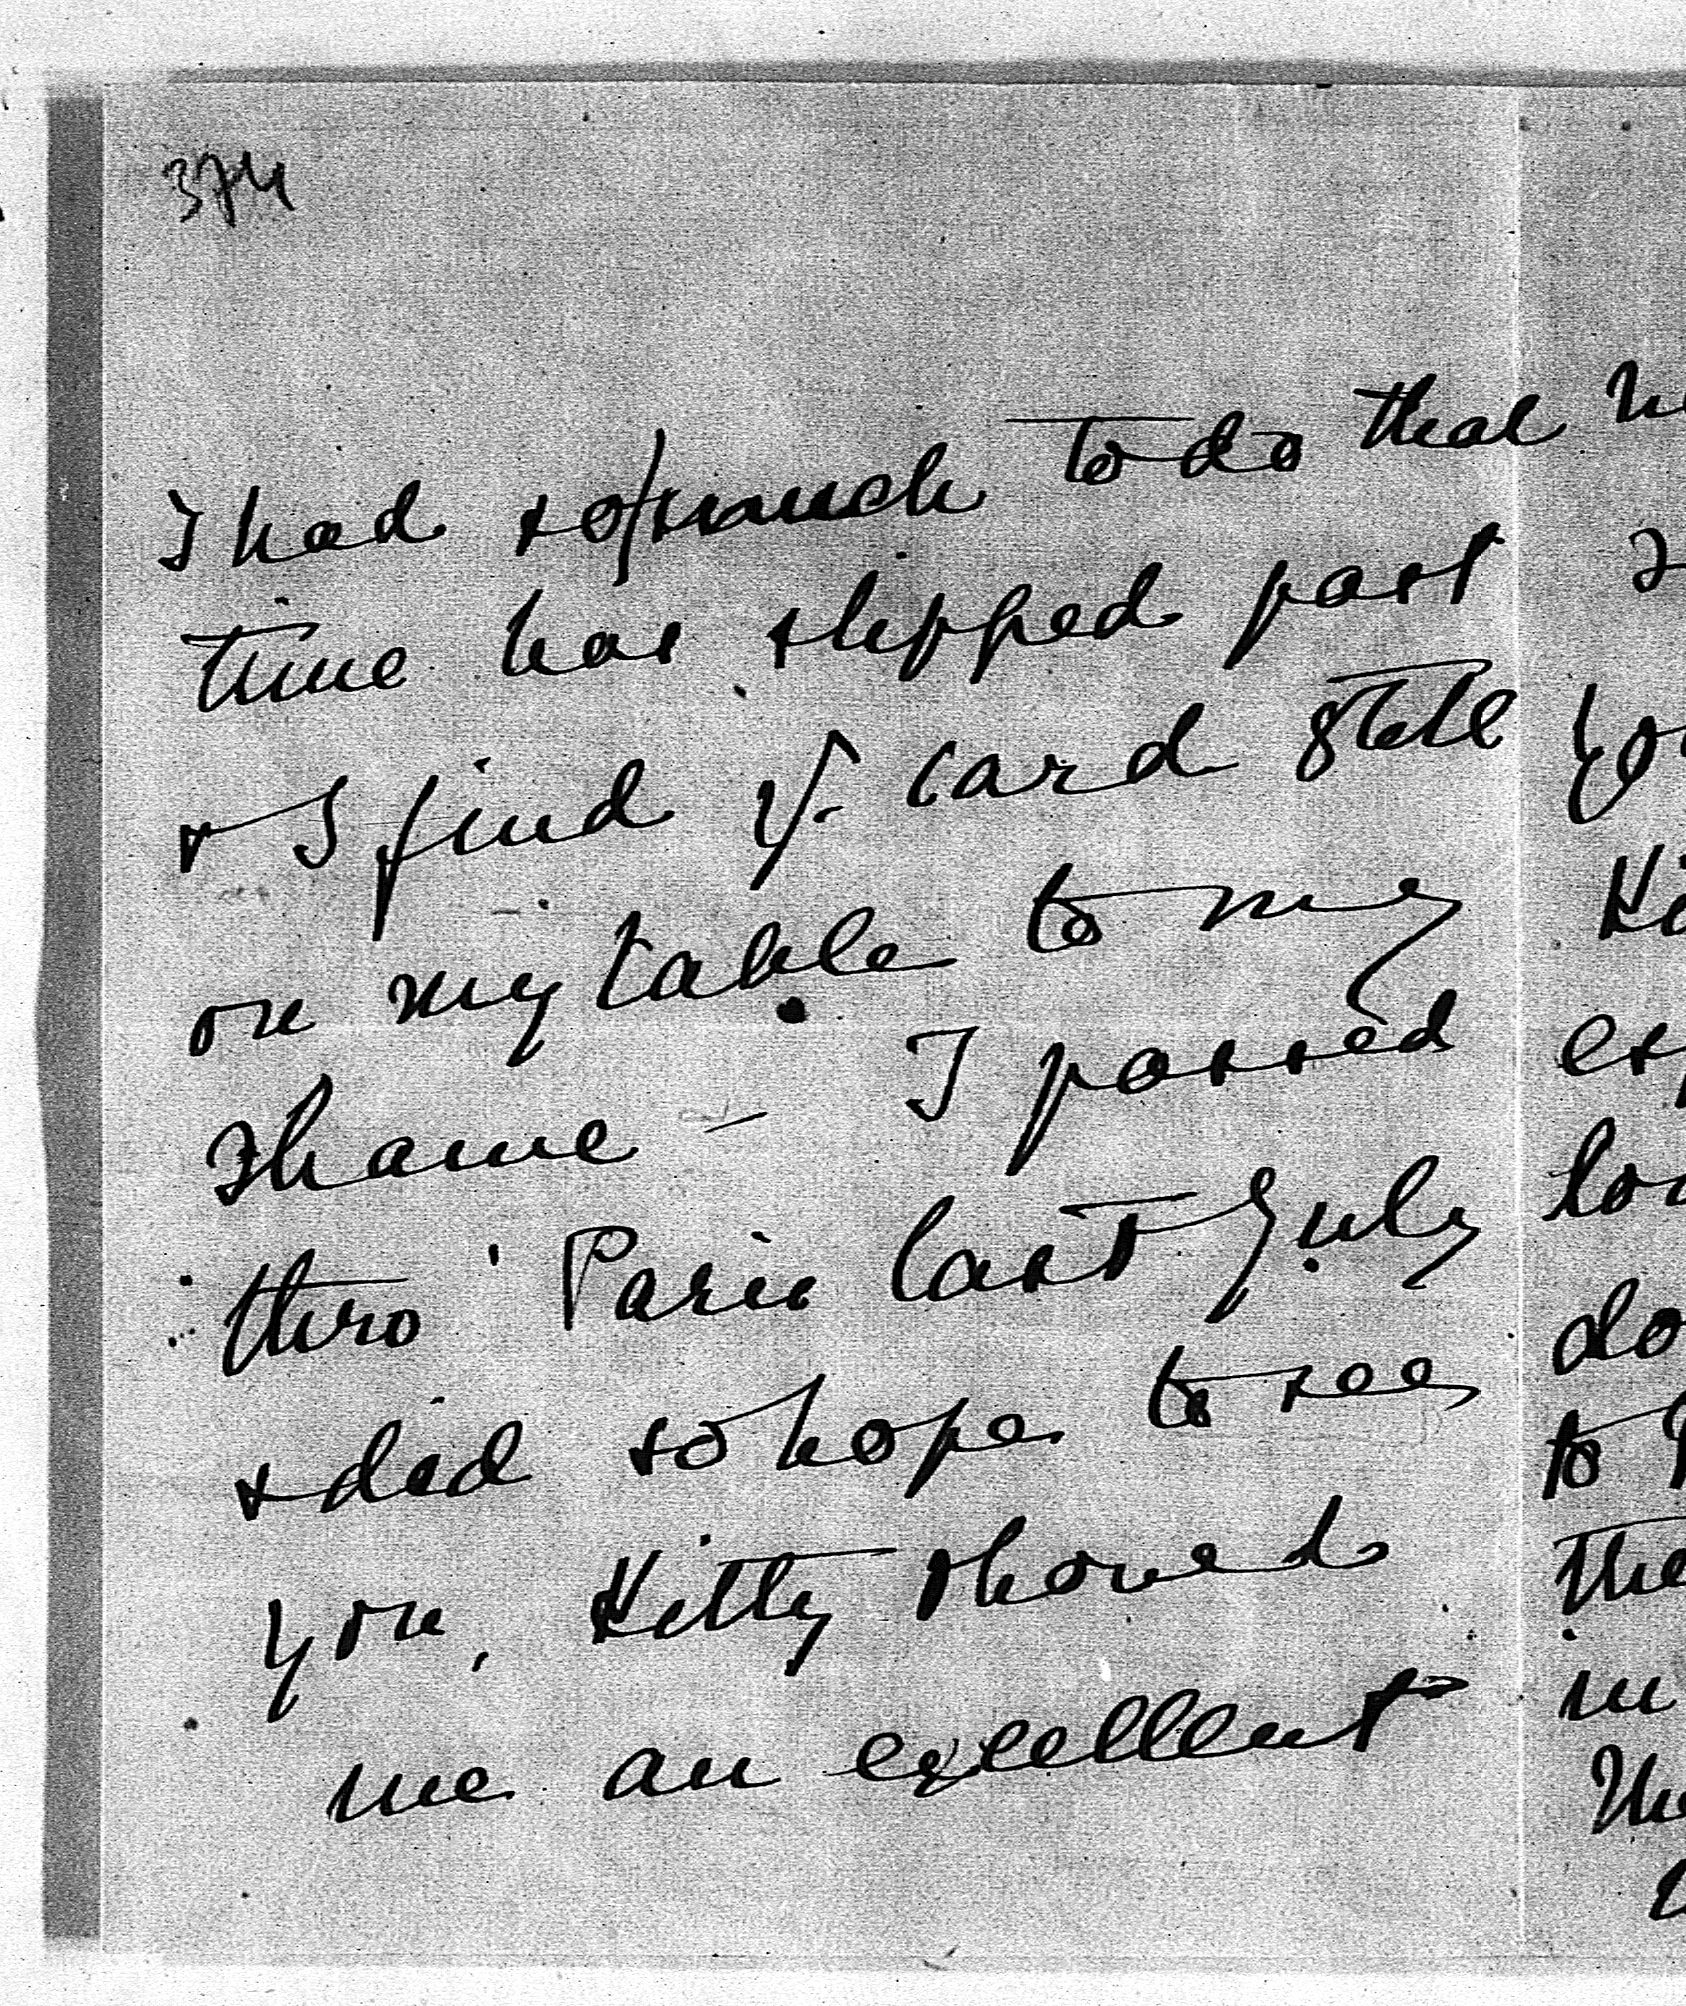 374
I had so/much to do that
time has slipped past
& I find yr. card still
on my table to my
shame – I passed
thro' Paris last July
& did so hope to see
you, Kitty showed
me an excellent